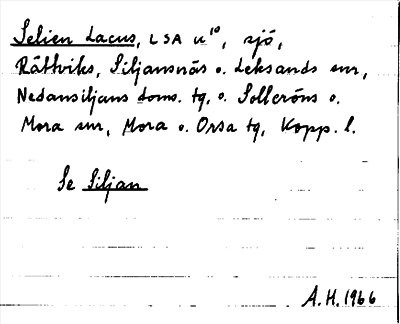 Selien Lacus, LSA u¹⁰, sjö,
Rättviks, Siljansnäs o. Leksands snr,
Nedansiljans doms. tg, o. Solleröns o.
Mora snr, Mora o. Orsa tg, Kopp. l.
Se Siljan
A.H. 1966